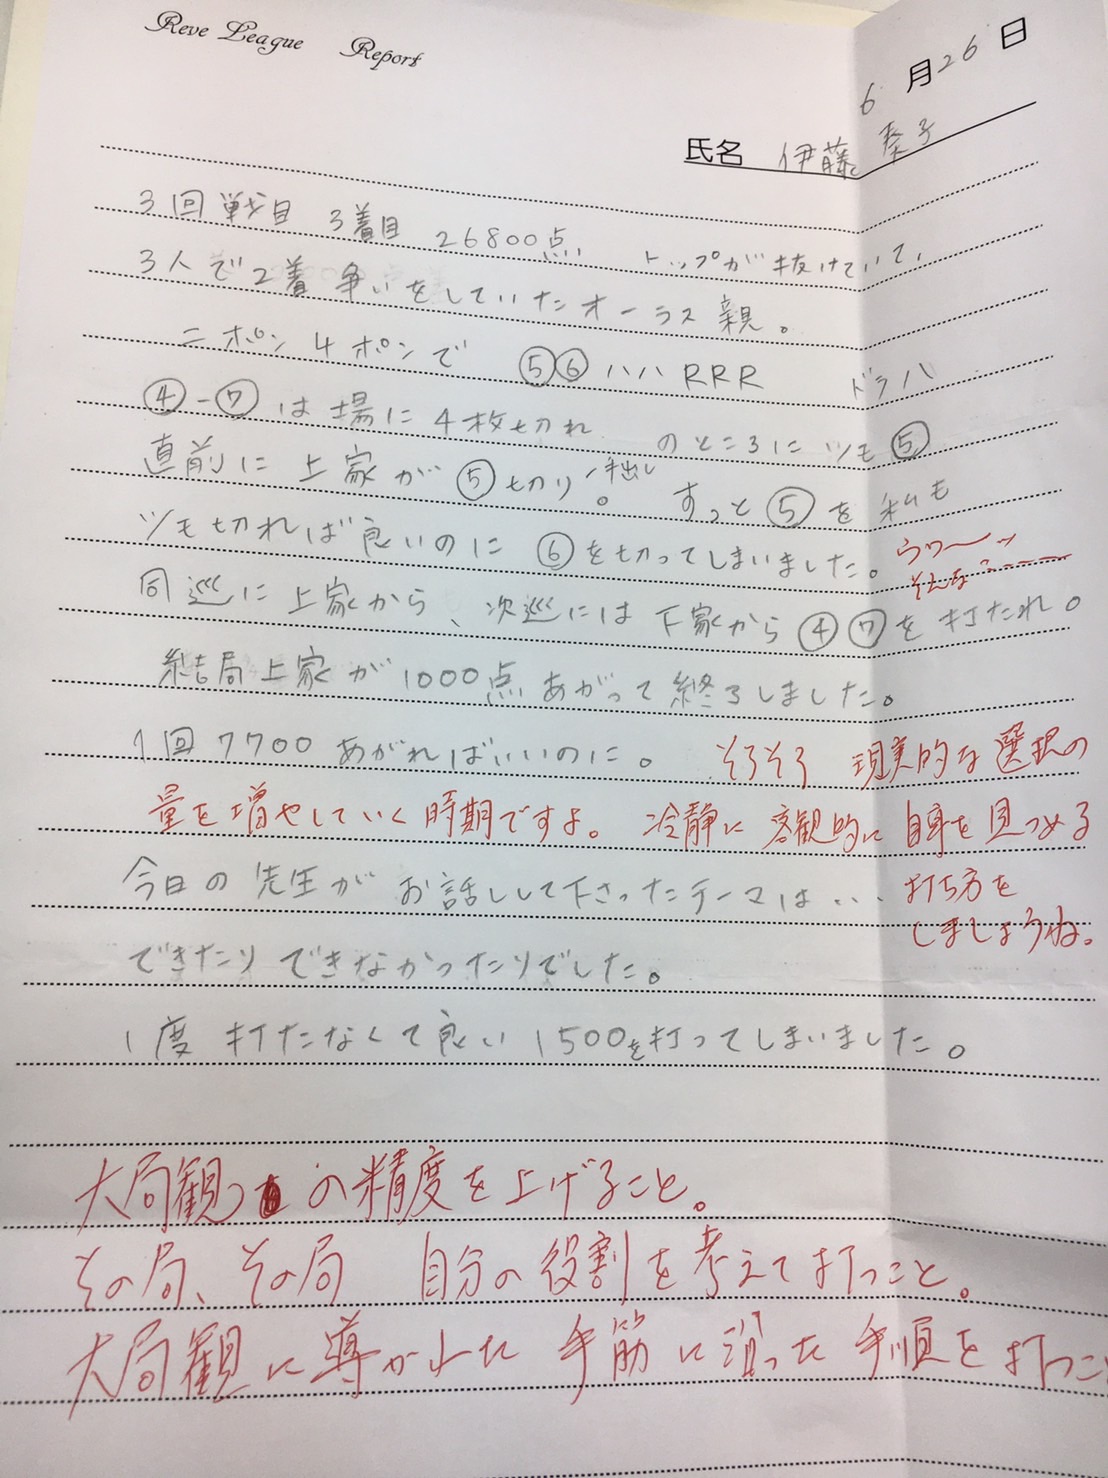 Reve League Report
6月26日
氏名 伊藤 奏子
3回戦目 3着目 26800点 トップが抜けていて、
3人で2着争いをしていたオーラス親。
ニポン4ポンで ⑤⑥ハハRRR ドラハ
④-⑦は場に4枚切れ のところにツモ⑤
直前に上家が⑤切り。手出し すっと⑤を私も
ツモ切れば良いのに⑥を切ってしまいました。
うわ〜ッ
そんな…
同巡に上家から、次巡には下家から④⑦を打たれ。
結局上家が1000点あがって終了しました。
1回7700あがればいいのに。
そろそろ 現実的な選択の
量を増やしていく時期ですよ。 冷静に客観的に自身を見つめる
打ち方を
しましょうね。
今日の先生がお話しして下さったテーマは...
できたりできなかったりでした。
1度打たなくて良い1500を打ってしまいました。
大局観の精度を上げること。
その局、その局 自分の役割を考えて打つこと。
大局観に導かれた手筋に沿った手順を打つこ